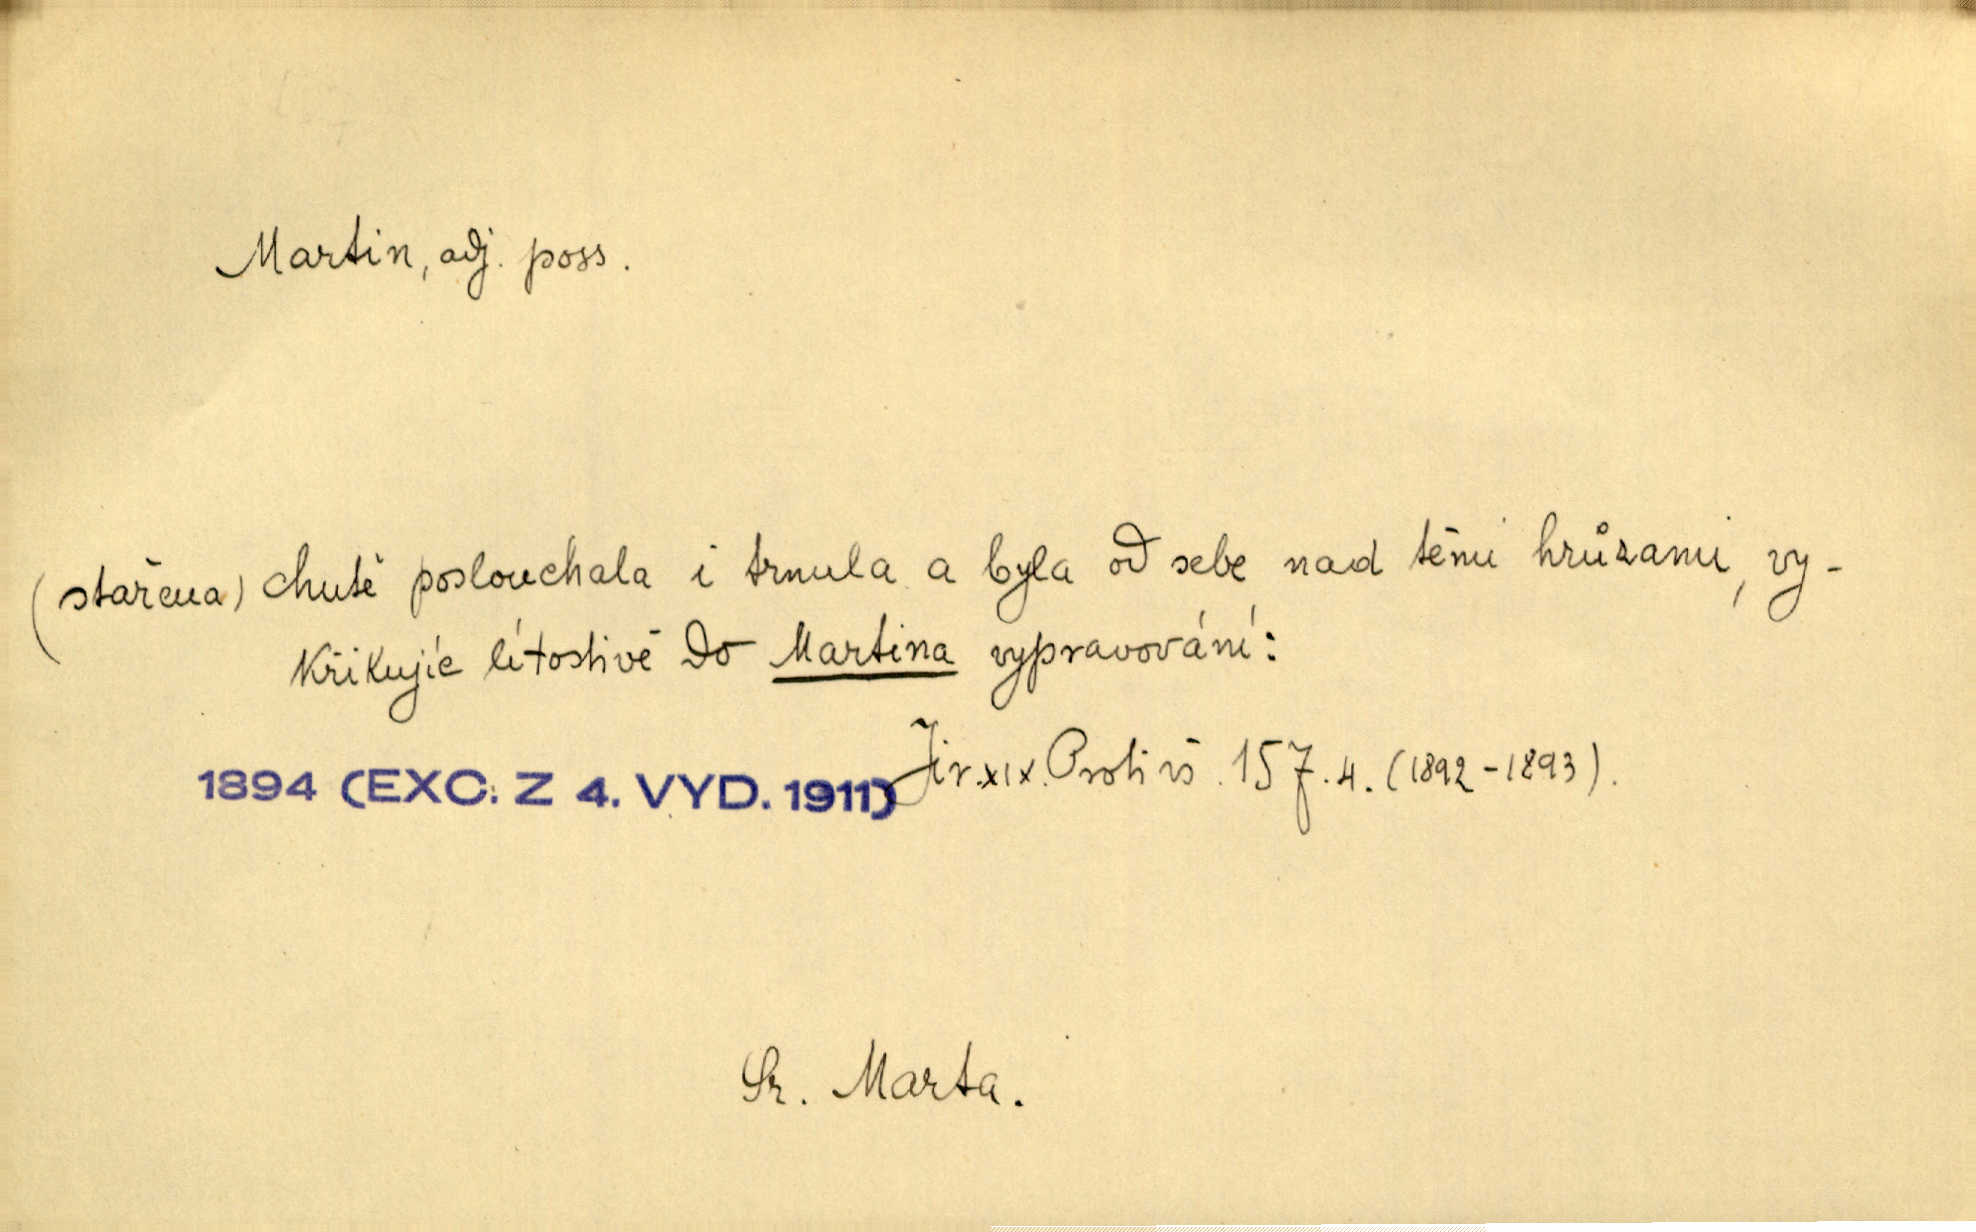 Martin, adj. poss.
(stařena) chutě poslouchala i trnula a byla od sebe nad těmi hrůzami, vy-
křikujíc lítostivě do Martina vypravování:
1894 (EXC. Z 4. VYD. 1911) Jir. XIX. Proti vš. 157. 4. (1892-1893).
Sr. Marta.